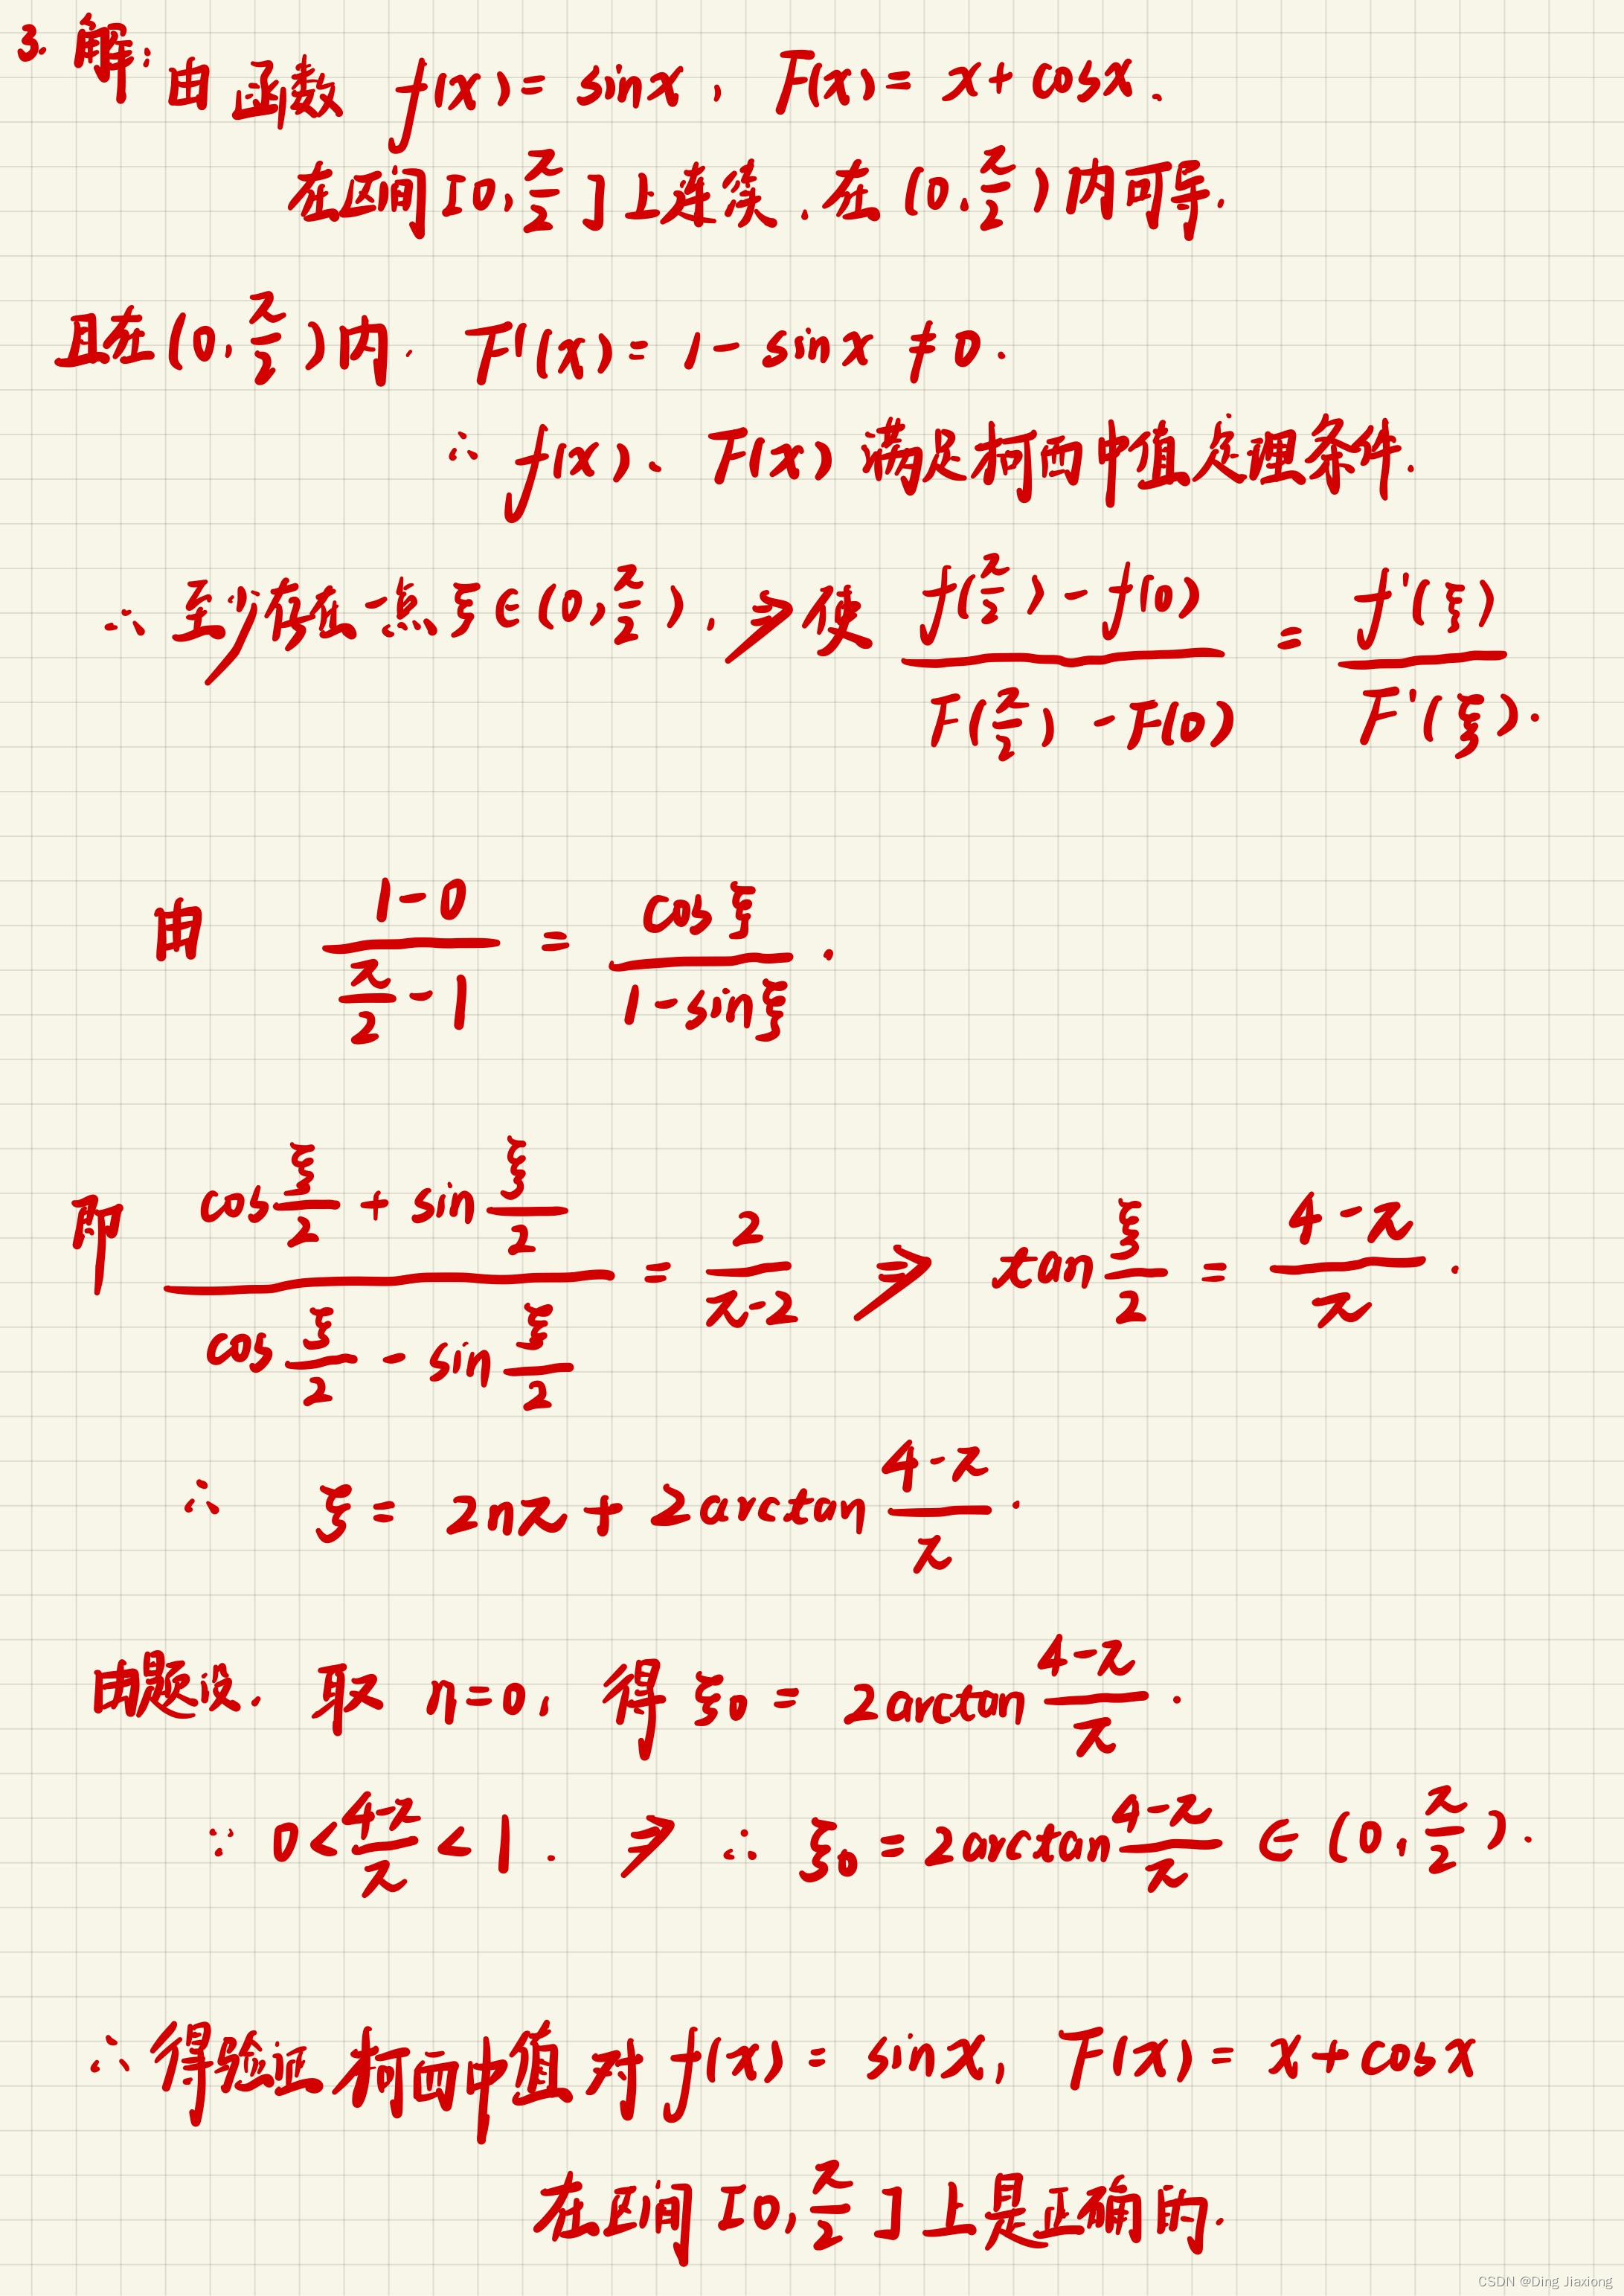 3. 解: 由函数 f(x) = sinx, F(x) = x + cosx.
在区间 [0, π/2] 上连续, 在 (0, π/2) 内可导.
且在 (0, π/2) 内. F'(x) = 1 - sinx ≠ 0.
∴ f(x)、F(x) 满足柯西中值定理条件.
∴ 至少存在一点 ξ ∈ (0, π/2), ⇒ 使 (f(π/2) - f(0)) / (F(π/2) - F(0)) = f'(ξ) / F'(ξ).
由 (1 - 0) / (π/2 - 1) = cosξ / (1 - sinξ).
即 (cos ξ/2 + sin ξ/2) / (cos ξ/2 - sin ξ/2) = 2 / (π - 2) ⇒ tan ξ/2 = (4 - π) / π.
∴ ξ = 2nπ + 2arctan (4 - π) / π.
由题设, 取 n = 0, 得 ξ0 = 2arctan (4 - π) / π.
∵ 0 < (4 - π) / π < 1. ⇒ ∴ ξ0 = 2arctan (4 - π) / π ∈ (0, π/2).
∴ 得验证柯西中值对 f(x) = sinx, F(x) = x + cosx
在区间 [0, π/2] 上是正确的.
CSDN @Ding Jiaxiong